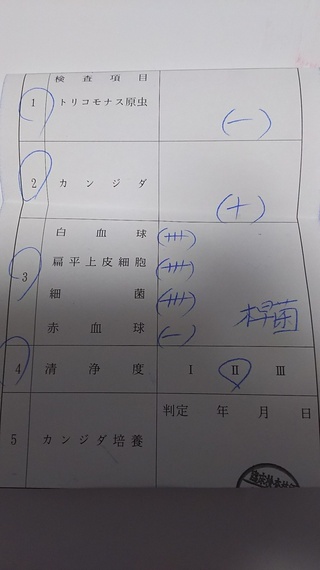 検査項目
1 トリコモナス原虫 (－)
2 カンジダ (＋)
3
白血球 (+++)
扁平上皮細胞 (+++)
細菌 (+++) 桿菌
赤血球 (－)
4 清浄度 Ⅰ Ⅱ Ⅲ
判定 年 月 日
5 カンジダ培養